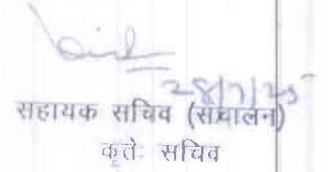 28/7/25
सहायक सचिव (संचालन)
कृते: सचिव